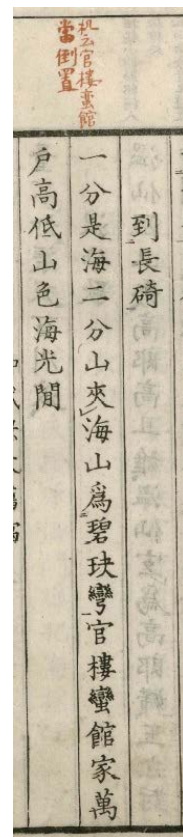 云官樓蛮館
當倒置
到長碕
一分是海二分山夾海山爲碧玦彎官樓蠻館家萬
户高低山色海光閒